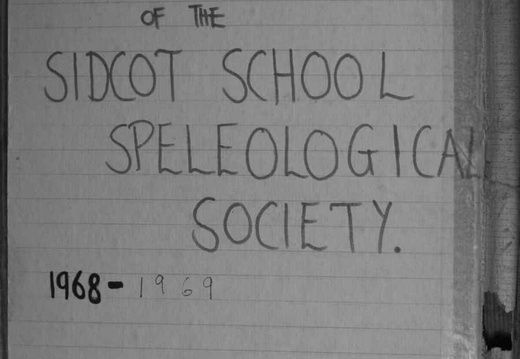 OF THE
SIDCOT SCHOOL
SPELEOLOGICAL
SOCIETY.
1968-1969